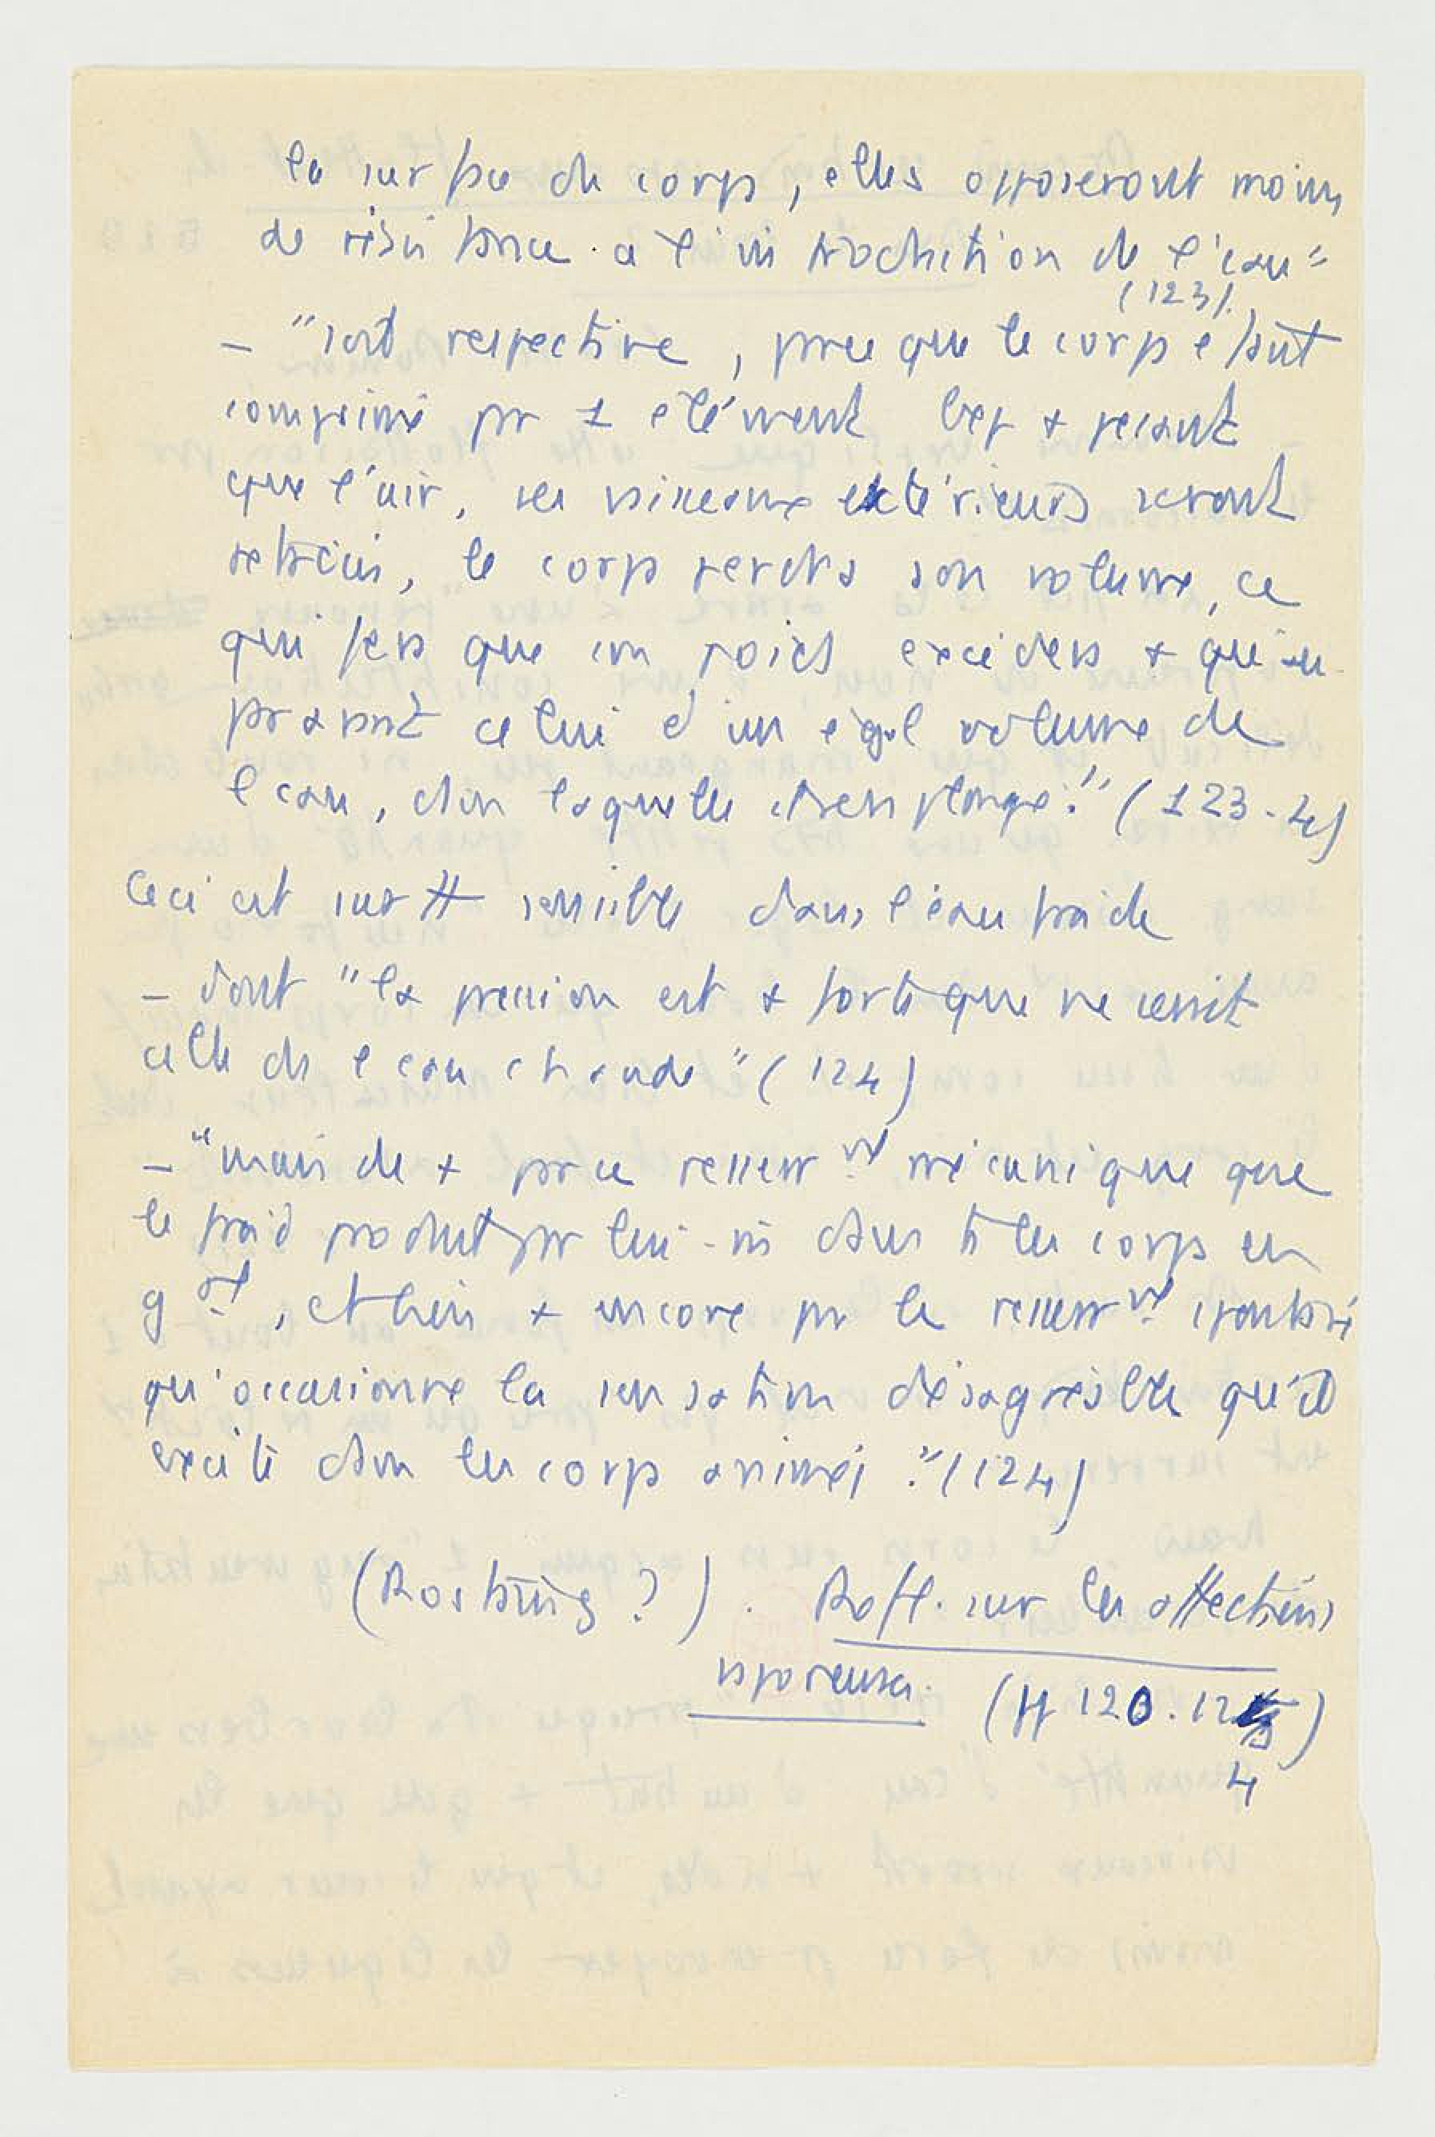 la surface du corps, elles opposeront moins
de résistance à l'introduction de l'eau"
(123).
– "soit respective, parce que le corps étant
comprimé par 1 élément bcp + pesant
que l'air, ses vaisseaux extérieurs seront
rétrécis, le corps perdra son volume, ce
qui fera que son poids excédera +
celui d'un égal volume de
l'eau, dans laquelle plongé." (123-4)
Ceci est surtt sensible dans l'eau froide
– dont "la pression est + forte que ne serait
celle de l'eau chaude" (124)
– "mais de + par ce resserrt mécanique que
le froid produit par lui-m dans ts les corps en
gal, et bien + encore par le resserrt spontané
qu'occasionne la sensation désagréable qu'il
excite dans les corps animés." (124)
(Rostaing ?). Refl. sur les affections
vaporeuses. (pp 120.12
4